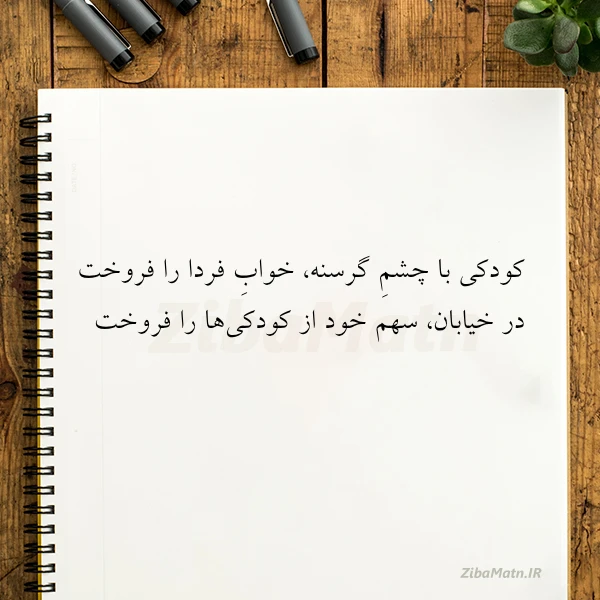 کودکی با چشمِ گرسنه، خوابِ فردا را فروخت
در خیابان، سهم خود از کودکی‌ها را فروخت
ZibaMatn
ZibaMatn.IR